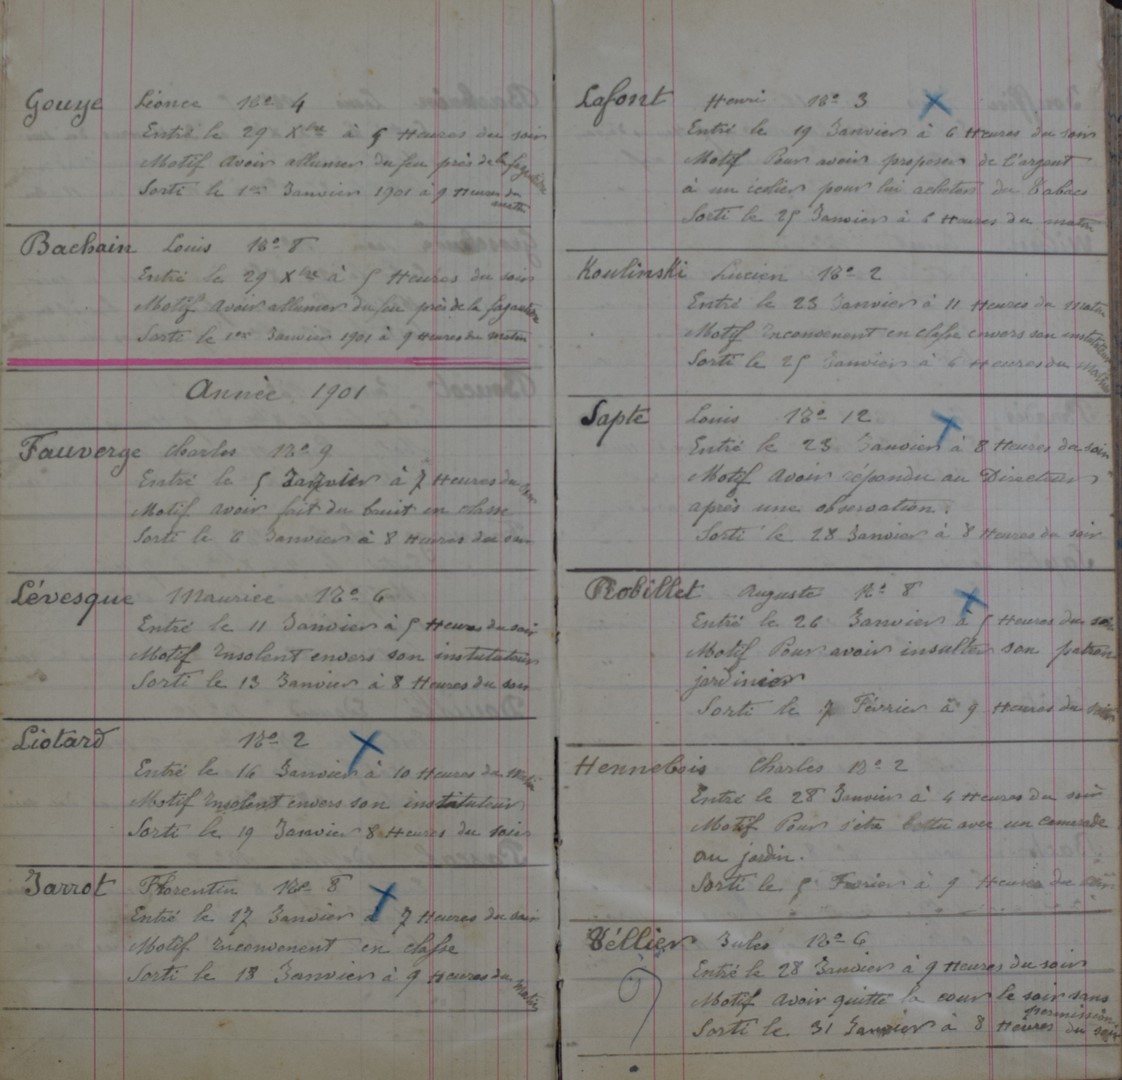 Gouye Léonce No 4
Entré le 29 Xbre à 5 Heures du soir
Motif Avoir allumer du feu près de la
Sorti le 1er Janvier 1901 à 9 Heures du
matin
Bachain Louis No 8
Entré le 29 Xbre à 5 Heures du soir
Motif Avoir allumer du feu près de la
Sorti le 1er Janvier 1901 à 9 Heures du matin
Année 1901
Fauverge Charles No 9
Entré le 5 Janvier à 7 Heures du soir
Motif avoir fait du bruit en classe
Sorti le 6 Janvier à 8 Heures du soir
Lévesque Maurice No 6
Entré le 11 Janvier à 5 Heures du soir
Motif Insolent envers son instituteur
Sorti le 13 Janvier à 8 Heures du soir
Liotard No 2
Entré le 16 Janvier à 10 Heures du matin
Motif Insolent envers son instituteur
Sorti le 19 Janvier 8 Heures du soir
Jarrot Florentin No 8
Entré le 17 Janvier à 7 Heures du soir
Motif Inconvenent en classe
Sorti le 18 Janvier à 9 Heures du matin
Lafont Henri No 3
Entré le 19 Janvier à 6 Heures du soir
Motif Pour avoir proposer de l'argent
à un icolier pour lui acheter du Tabac
Sorti le 25 Janvier à 6 Heures du matin
Koulinski Lucien No 2
Entré le 23 Janvier à 11 Heures du matin
Motif Inconvenent en classe envers son instituteur
Sorti le 25 Janvier à 6 Heures du matin
Sapte Louis No 12
Entré le 23 Janvier à 8 Heures du soir
Motif Avoir répondu au Directeur
après une observation.
Sorti le 28 Janvier à 8 Heures du soir
Robillet Auguste No 8
Entré le 26 Janvier à 5 Heures du soir
Motif Pour avoir insulter son patron
jardinier
Sorti le 7 Février à 9 Heures du soir
Hennebois Charles No 2
Entré le 28 Janvier à 4 Heures du soir
Motif Pour s'etre battu avec un camarade
au jardin.
Sorti le 5 Fevrier à 9 Heures du soir
Véllier Jules No 6
Entré le 28 Janvier à 9 Heures du soir
Motif Avoir quitté la cour le soir sans
permission
Sorti le 31 Janvier à 8 Heures du soir